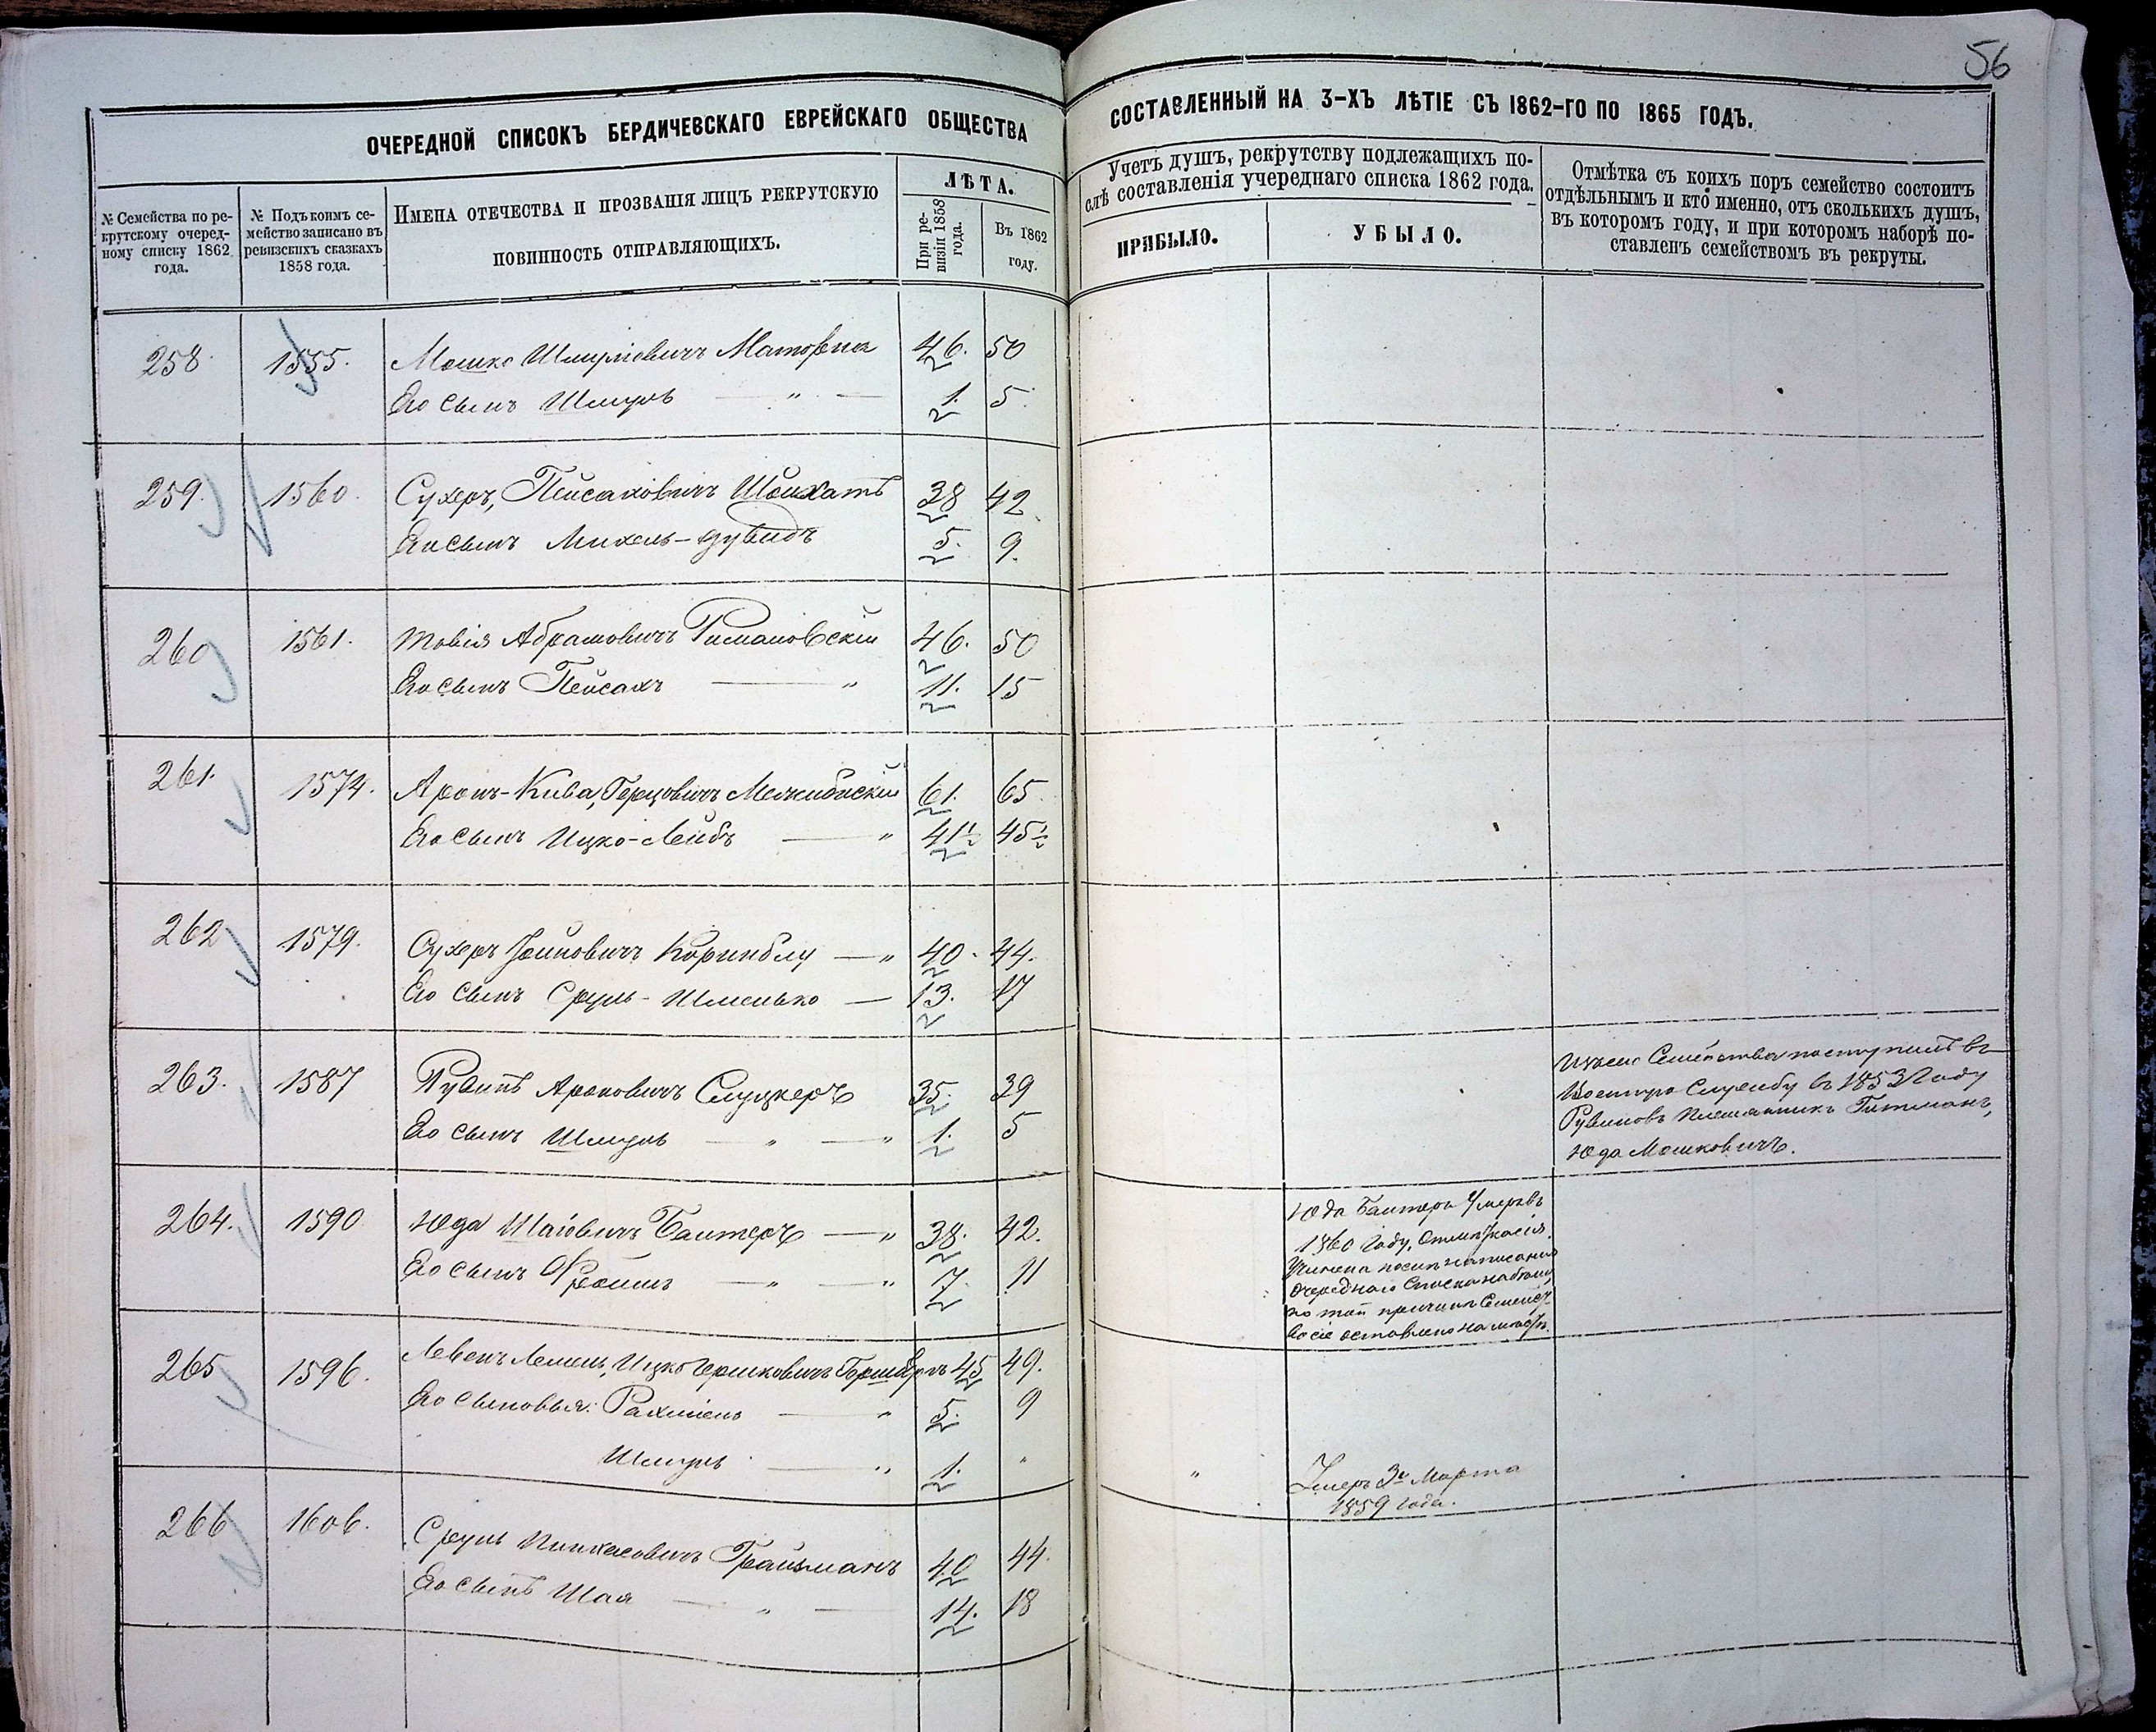 56
ОЧЕРЕДНОЙ СПИСОКЪ БЕРДИЧЕВСКАГО ЕВРЕЙСКАГО ОБЩЕСТВА
СОСТАВЛЕННЫЙ НА 3-ХЪ ЛѢТІЕ СЪ 1862-ГО ПО 1865 ГОДЪ.
№ Семейства по ре-
крутскому очеред-
ному списку 1862
года.
№ Подъ коимъ се-
мейство записано въ
ревизскихъ сказкахъ
1858 года.
ИМЕНА ОТЕЧЕСТВА И ПРОЗВАНІЯ ЛИЦЪ РЕКРУТСКУЮ
ПОВИННОСТЬ ОТПРАВЛЯЮЩИХЪ.
ЛѢТА.
При ре-
визіи 1858
года.
Въ 1862
году.
Учетъ душъ, рекрутству подлежащихъ по-
слѣ составленія учереднаго списка 1862 года.
ПРИБЫЛО.
УБЫЛО.
Отмѣтка съ коихъ поръ семейство состоитъ
отдѣльнымъ и кто именно, отъ сколькихъ душъ,
въ которомъ году, и при которомъ наборѣ по-
ставленъ семействомъ въ рекруты.
258. 1555. Мошко Шмулiовичъ 46. 50
Его сынъ Шмуль — " — 1. 5.
259. 1560. Сухеръ, Пейсаховичъ Шойхатъ 38 42
Его сынъ Михель-Дувидъ 5. 9.
260 1561. Товія Абрамовичъ Римановскій 46. 50
Его сынъ Пейсахъ — " 11. 15
261. 1574. Аронъ-Кива, Герцовичъ Межибискій 61. 65.
Его сынъ Ицко-Лейбъ — " 41½ 45½
262 1579. Сухеръ Коринблу — " 40. 44.
Его сынъ Сруль-Шменько — 13. 17
263. 1587 Рувинъ Ароновичъ Слуцкеръ 35. 39
Его сынъ Шмуль — " — " 1. 5
Изъ сего Семейства поступилъ въ
Военную Службу въ 1853 Году
Рувиновъ Племянникъ Гитманъ,
Юда Мошковичъ.
264. 1590 Юда Шаiовичъ Бантеръ — " 38. 42.
Его сынъ Фроимъ — " — " 7. 11
Юда Бантеръ Умеръ въ
1860 Году,
очереднаго Списка
по той причинѣ Семейст-
во сіе оставлено на
265 1596. Лемель, Ицко Гершковичъ 45 49.
Его сыновья: Рахміель — " 5. 9
Шмуль — " 1. "
" Умеръ 3го Марта
1859 года.
266 1606. Сруль Пинкасовичъ Грайзманъ 40 44.
Его сынъ Шая — " — 14. 18